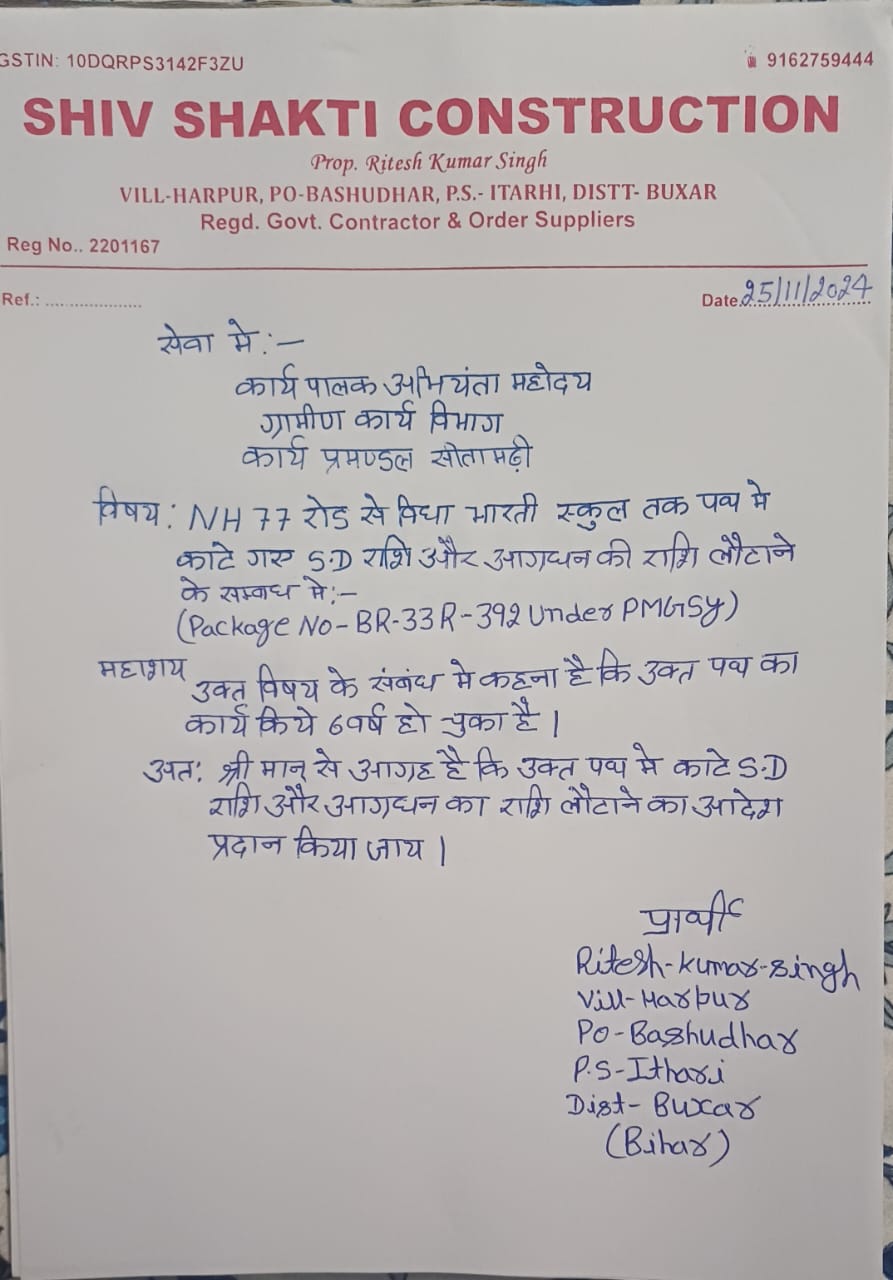 GSTIN: 10DQRPS3142F3ZU
9162759444
SHIV SHAKTI CONSTRUCTION
Prop. Ritesh Kumar Singh
VILL-HARPUR, PO-BASHUDHAR, P.S.- ITARHI, DISTT- BUXAR
Regd. Govt. Contractor & Order Suppliers
Reg No.. 2201167
Ref.: ....................
Date 25/11/2024
सेवा मे :-
कार्य पालक अभियंता महोदय
ग्रामीण कार्य विभाग
कार्य प्रमण्डल सीतामढ़ी
विषय : NH 77 रोड से विधा भारती स्कुल तक पथ मे
काटे गए S.D राशि और अग्रधन की राशि लौटाने
के सम्बाध मे :-
(Package No- BR-33R-392 Under PMGSY)
महाशय
उक्त विषय के संबंध मे कहना है कि उक्त पथ का
कार्य किये 6 वर्ष हो चुका है |
अत: श्री मान् से आग्रह है कि उक्त पथ मे काटे S.D
राशि और अग्रधन का राशि लौटाने का आदेश
प्रदान किया जाय |
प्रार्थी
Ritesh-kumar-singh
Vill-Harpur
Po-Bashudhar
P.S-Ithari
Dist- Buxar
(Bihar)